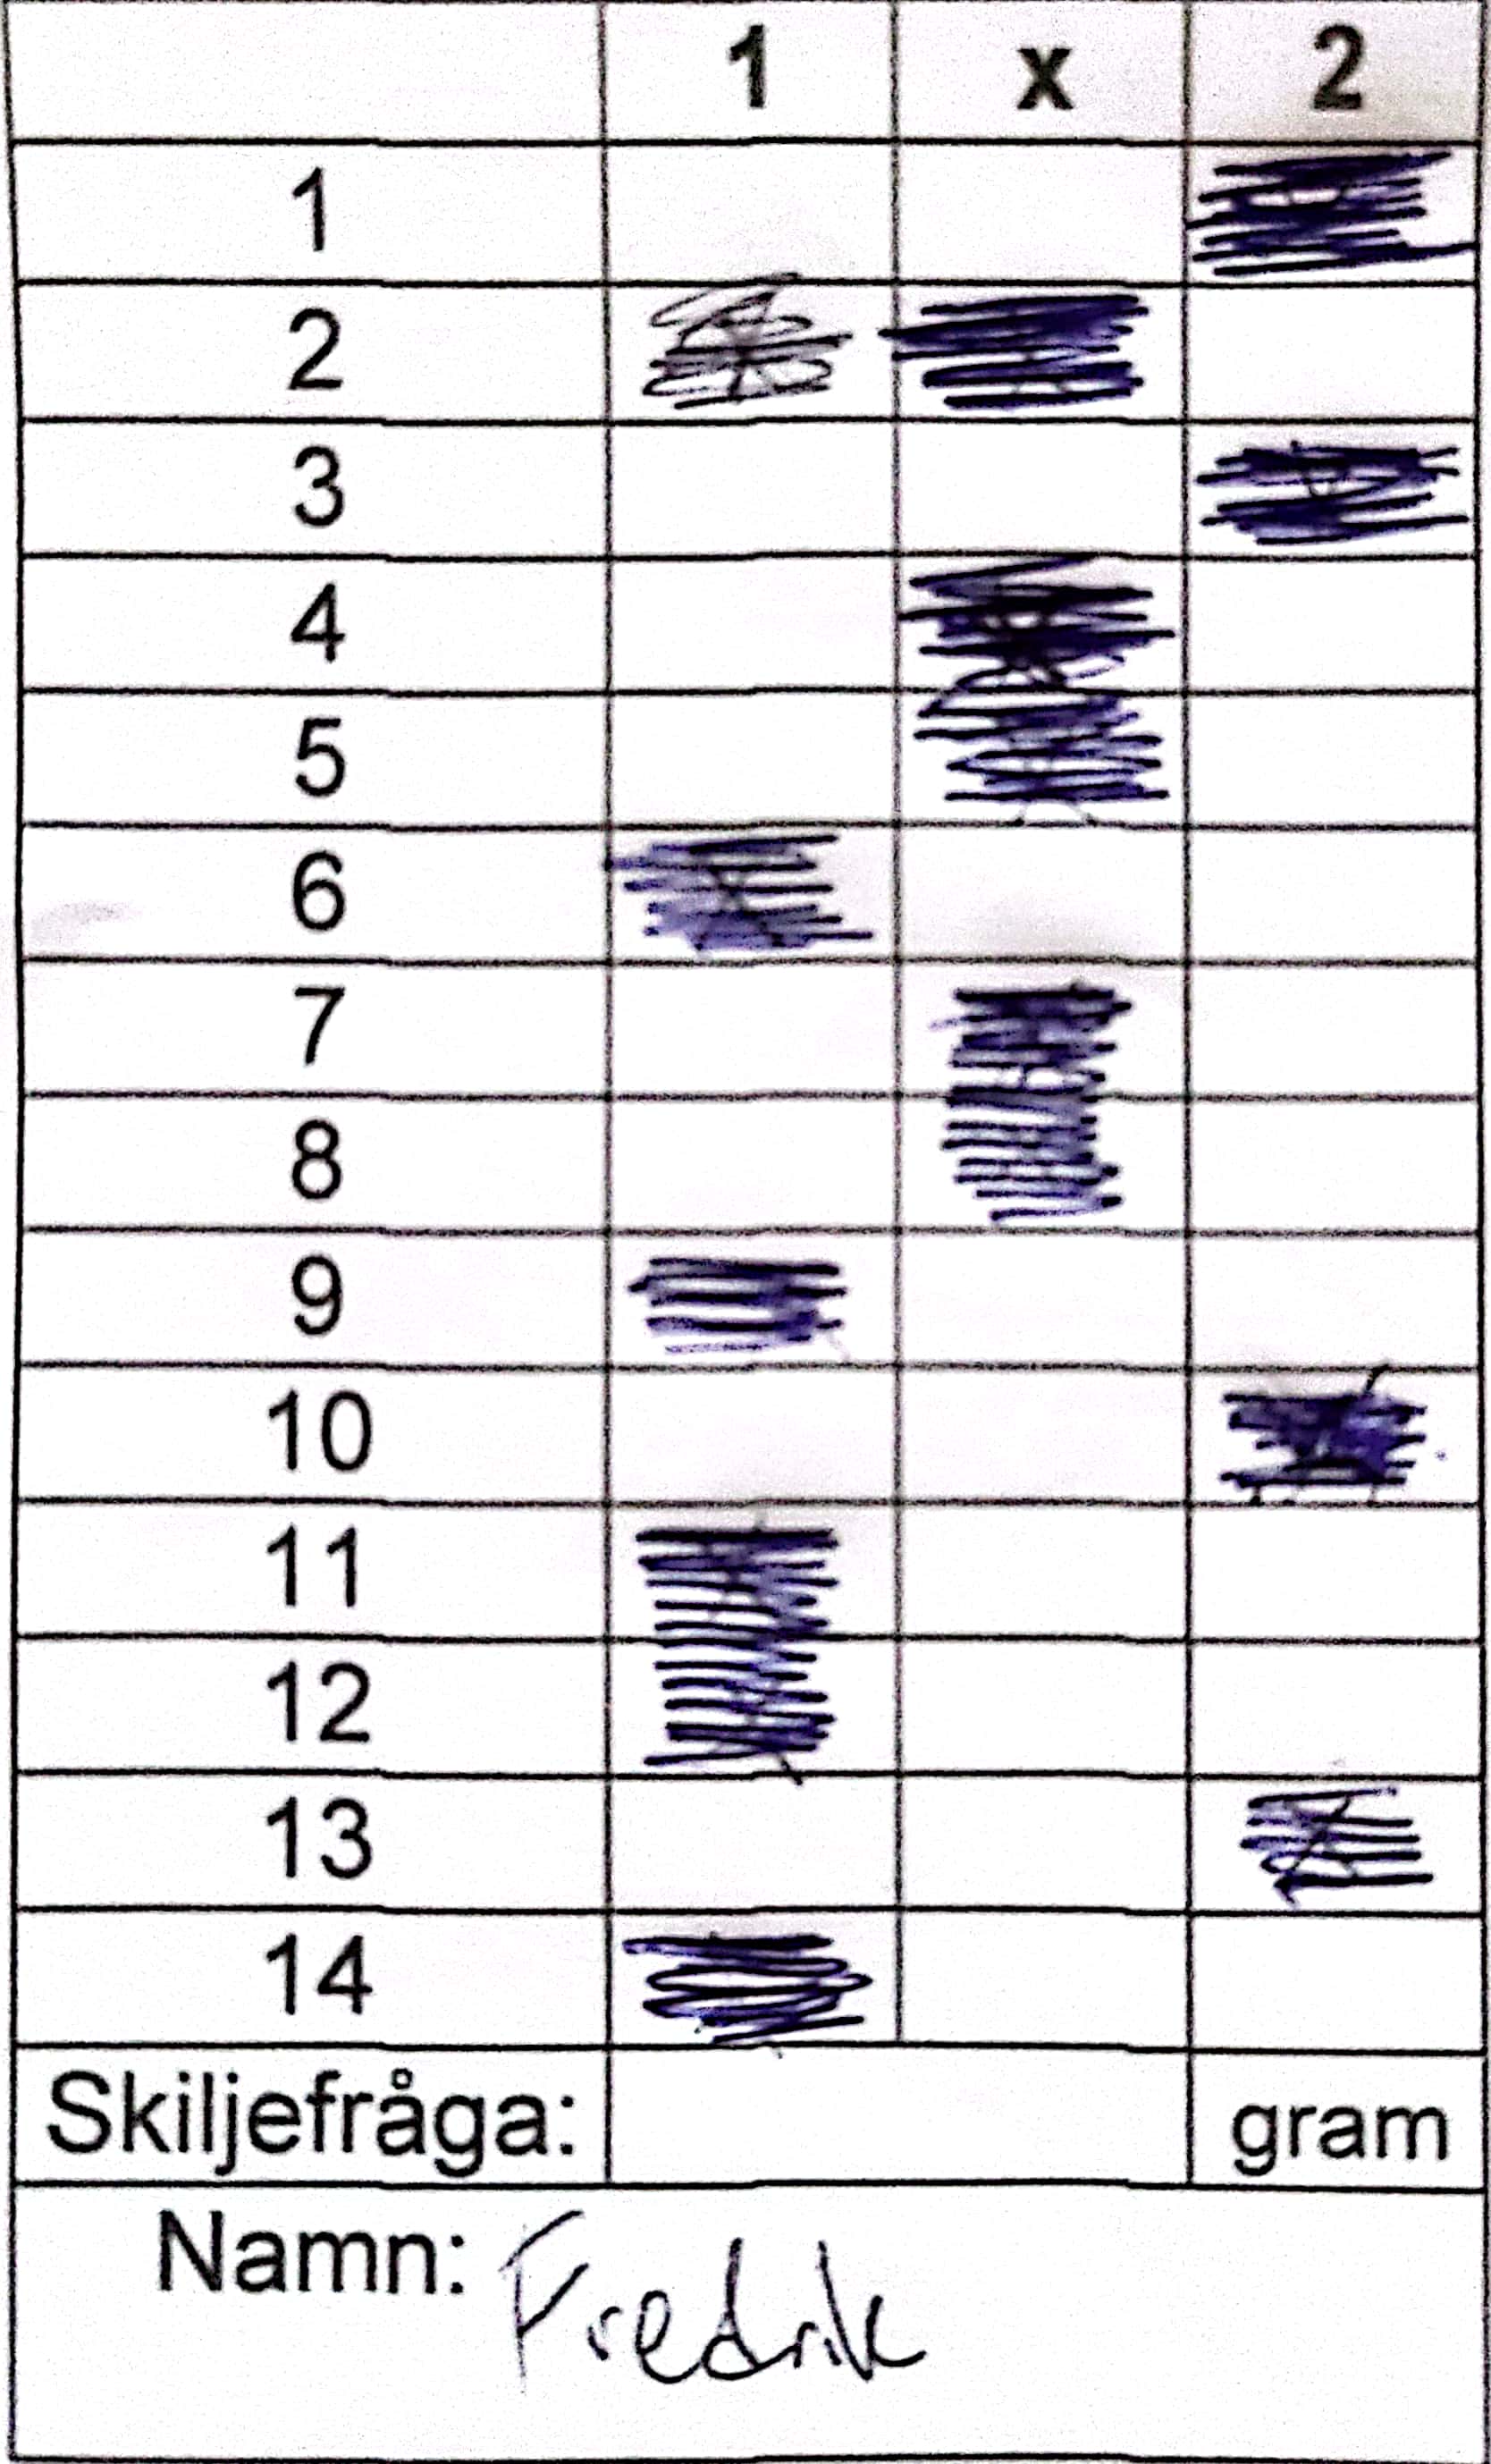 1 x 2
1
2
3
4
5
6
7
8
9
10
11
12
13
14
Skiljefråga: gram
Namn: Fredrik